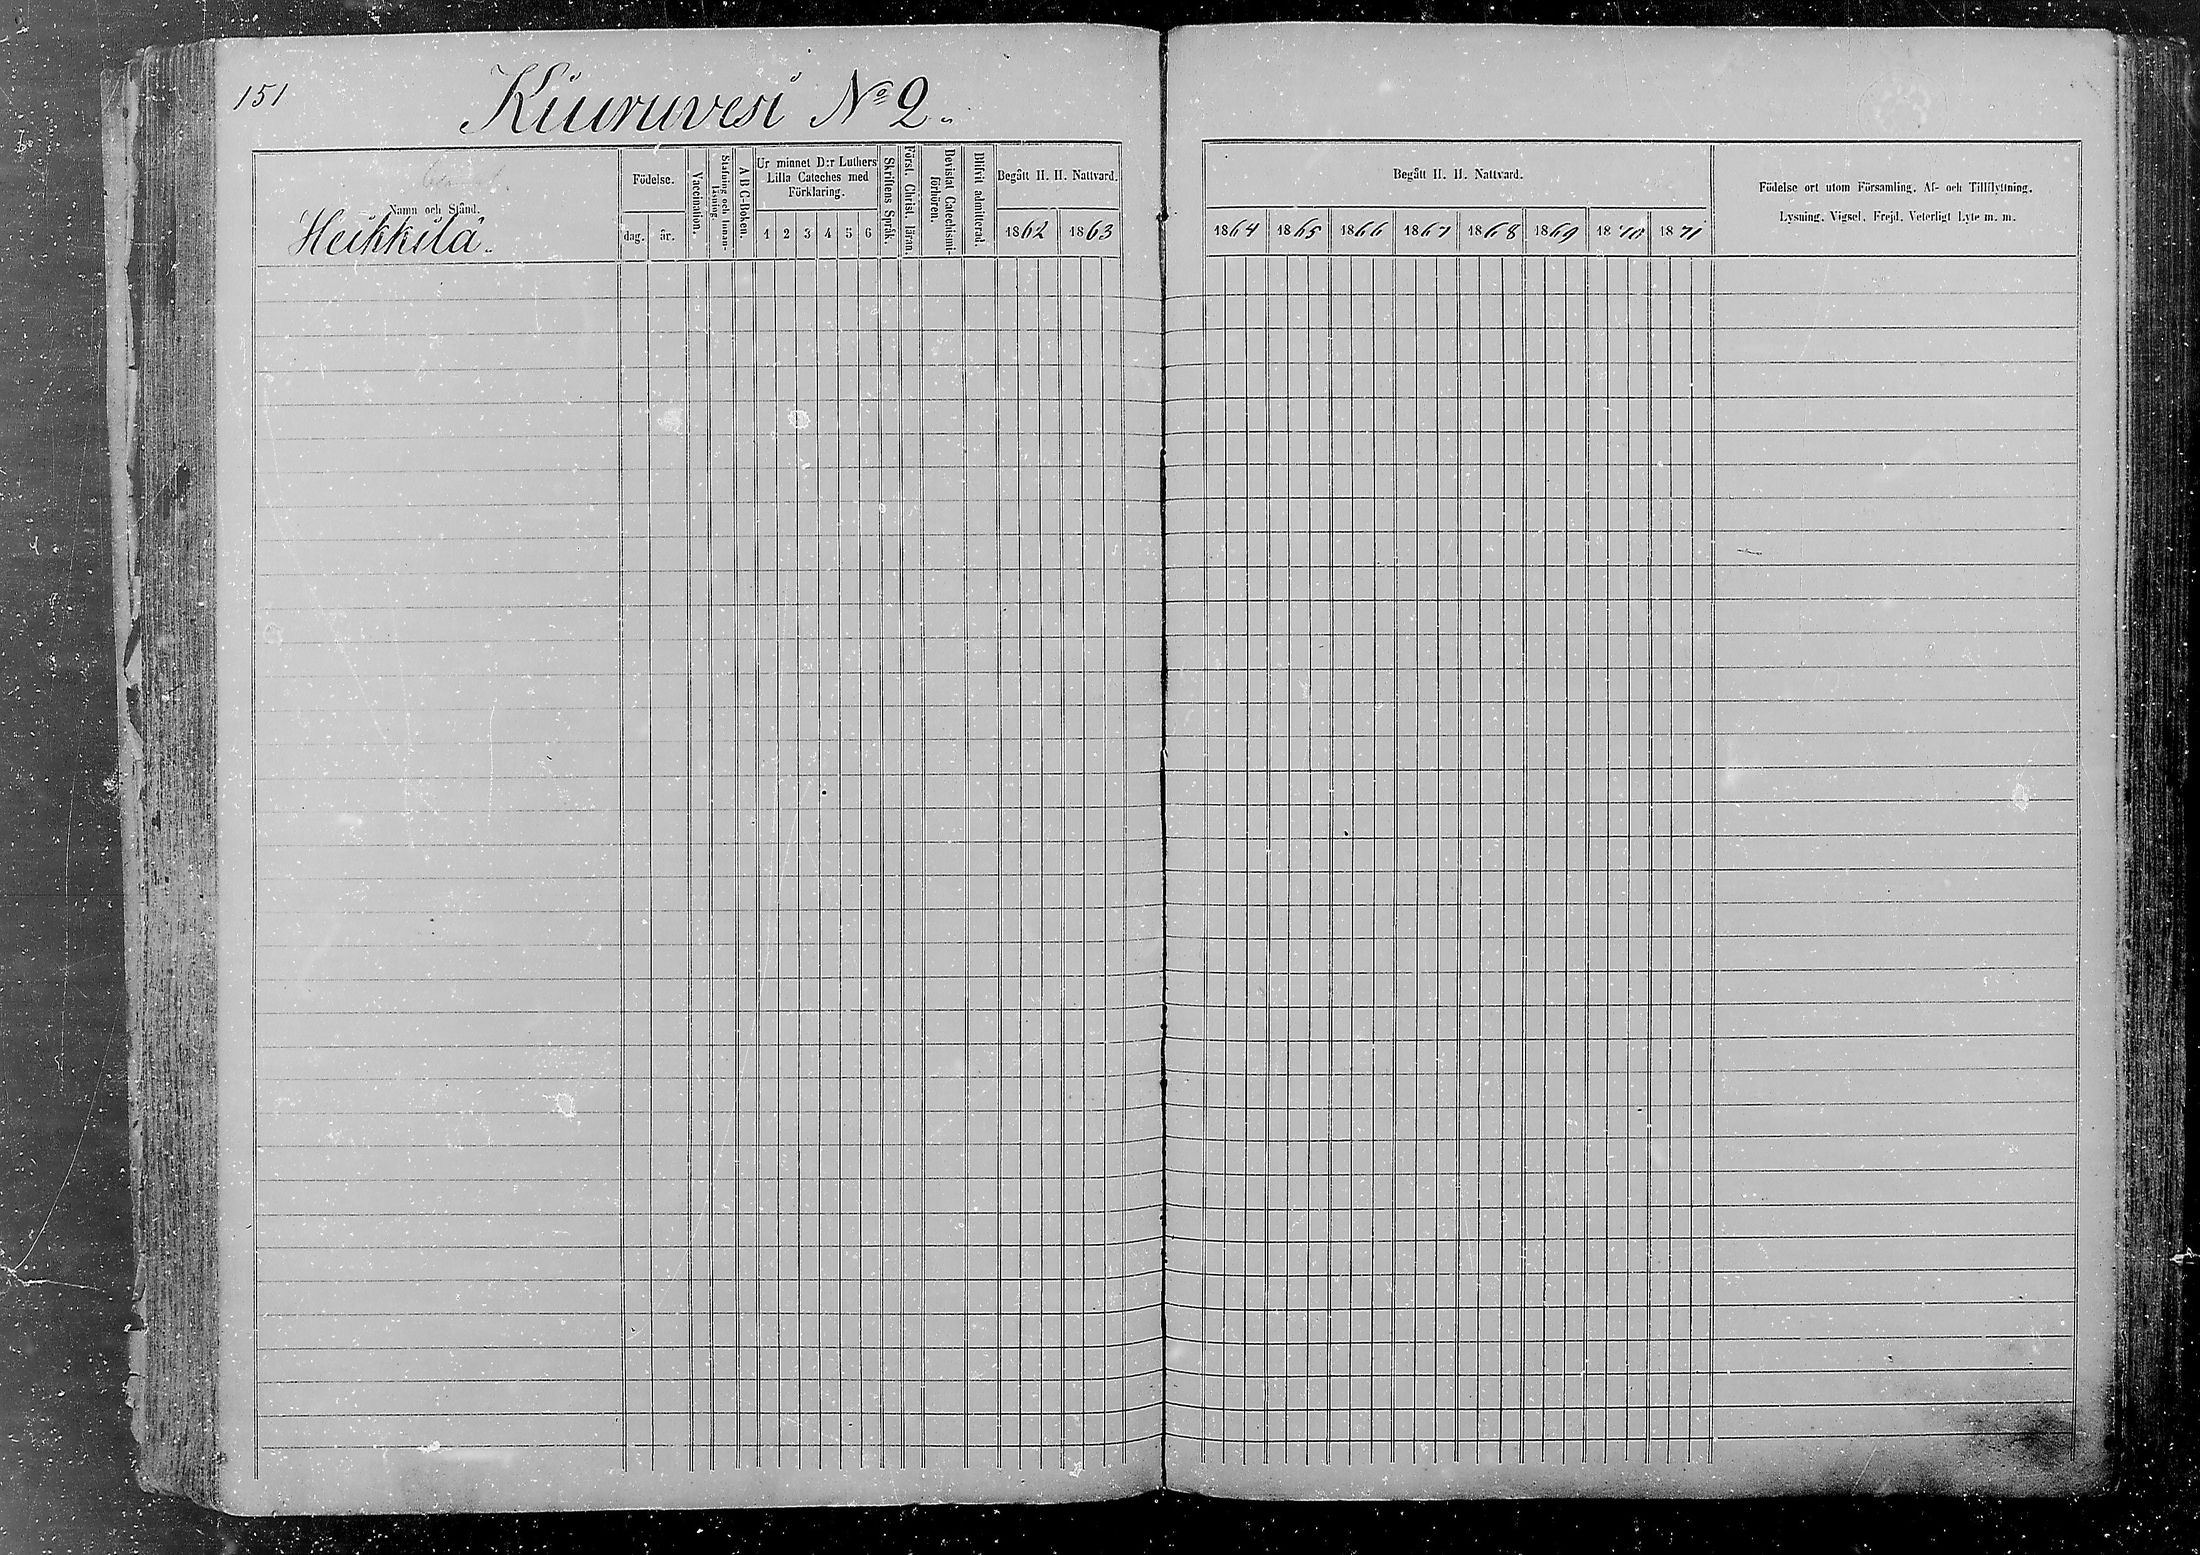 151
Kiuruvesi No 2.
Namn och Stånd.
Heikkilä.
Födelse.
dag.
år.
Vaccination.
Stafning och Innan-
läsning.
A B C-Boken.
Ur minnet D:r Luthers
Lilla Cateches med
Förklaring.
1 2 3 4 5 6
Skriftens Språk.
Först. Christ. läran.
Bevistat Catechismi-
förhören.
Blifvit admitterad.
Begått H. H. Nattvard.
1862 1863
Begått H. H. Nattvard.
1864 1865 1866 1867 1868 1869 1870 1871
Födelse ort utom Församling. Af- och Tillflyttning.
Lysning. Vigsel. Frejd. Veterligt Lyte m. m.